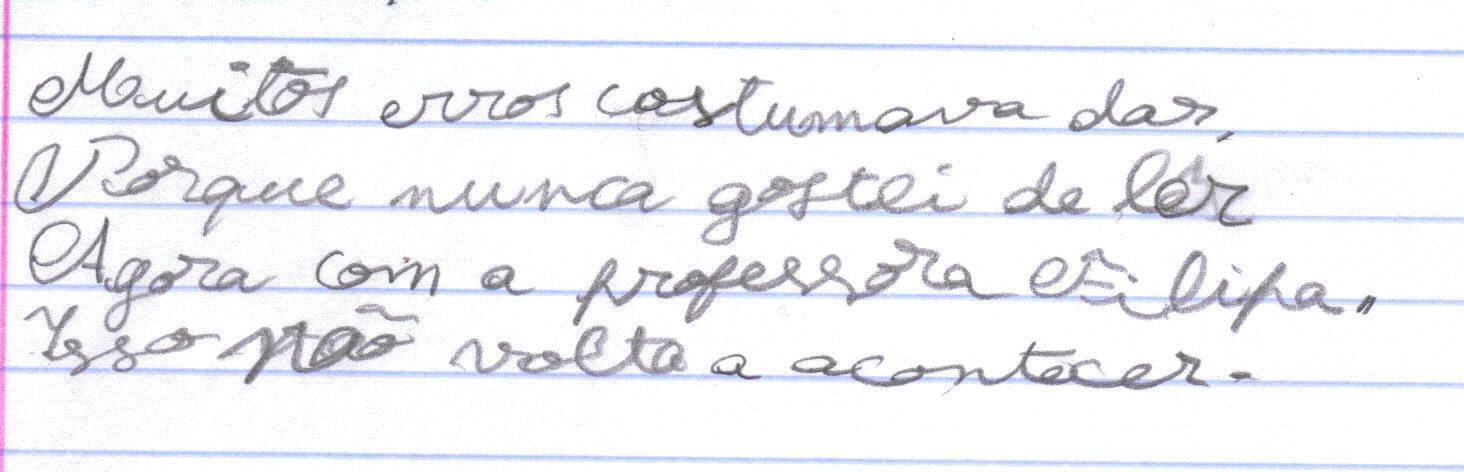 Muitos erros costumava dar,
Porque nunca gostei de lêr
Agora com a professora Filipa,
Isso não volta a acontecer.